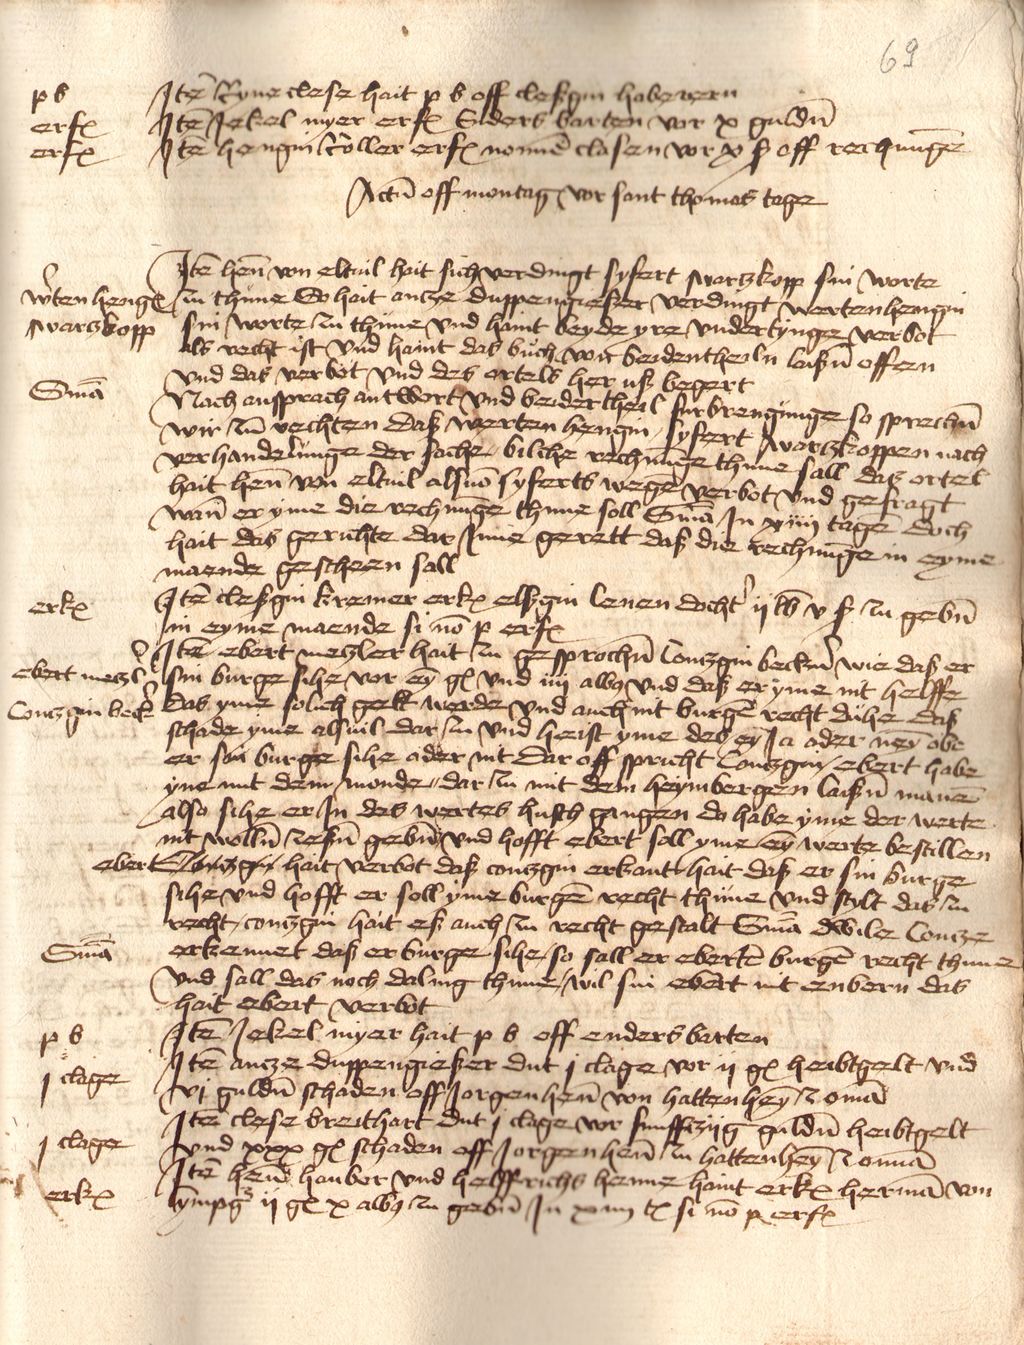 69
p b Itē Ryne clese hait p b off cleßgin habenern
erfx Itē Jekel myer erfx Enders barten vor x guldn̄
erfx Itē hengin Roller erfx nonnē clasen vor x ß off rechnūge
Actū off montag vor sant thomas tage
Itē hen̄ von eltuil hait sich verdingt syfert swartzkopp sin worte
w'ten heng zu thune So hait antze duppengießer verdingt wertenhengin
swartzkopp sin worte zu thune vnd haint beyde yre vnderdynge verbot
als recht ist vnd haint das buch von beidentheiln laißn̄ offen
vnd das verbot vnd des ortels her uß begert
Sniā Nach ansprach antwort vnd beidertheil furbrengūnge so sprechn̄
wir zu rechten daß werten hengin syfert swartzkoppen nach
verhandelūnge der sache bilche rechnūge thune sall daß ortel
hait hen̄ von eltuil alsuō syferts wegē verbot vnd gefragt
wan̄ er yme die rechnūge thune soll Sniā In xiiij tagē doch
hait das gerichte dar Inne gerett daß die rechnūge in eyme
maende gescheen sall
erkx Itē cleßgin kremer erkx elßgin lenen docht' ij lb v ß zu gebn̄
in eyme maende si nō p erfx
Itē ebert metzler hait zu gesprochn̄ Contzgin beckn̄ wie daß er
ebert metzl' sin burge sihe vor ey̅ gl vnd iiij albo vnd daß er yme nit helffe
Contzgin beck' das yme solich gelt werde vnd auch nit burgē recht duhe daß
schade yme alsuil dar zu vnd heist yme des ey̅ Ja ader ney̅ obe
er sin burge sihe ader nit Dar off spricht Contzgin ebert habe
yne mit dem monde dar zu mit dem heymbergen laißn̄ manē
also sihe er In des wertes husch gangen do habe yme der werte
nit wolln̄ zeßn̄ gebn̄ vnd hofft ebert sall yme ey̅ werte bestillen
ebert Contzgin hait verbot daß contzgin erkant hait daß er sin burge
sihe vnd hofft er soll yme burgē recht thune vnd stilt das zu
recht contzgin hait eß auch zu recht gestalt Sniā dwile Contze
Sniā erkennet daß er burge sihe so sall er ebertē burgē recht thune
vnd sall das noch daling thune wil sin ebert nit enbern das
hait ebert verbot
p b Itē Jekel myer hait p b off endersbarten
j clage Itē antze duppengießer dut j clage vor ij gl heibtgelt vnd
vj guldn̄ schaden off Jorgenhen̄ von hattenhey̅ z omā
j clage Itē clese breithart dut j clage vor funffzijg guldn̄ heibtgelt
vnd xxx gl schaden off Jorgenhen̄ zu hattenhey̅ z omā
erkx Itē hen̄ hanbor vnd helffrichs henne haint erkx hermā von
ij gl x albo zu gebn̄ In xiiij tx si nō p erfx